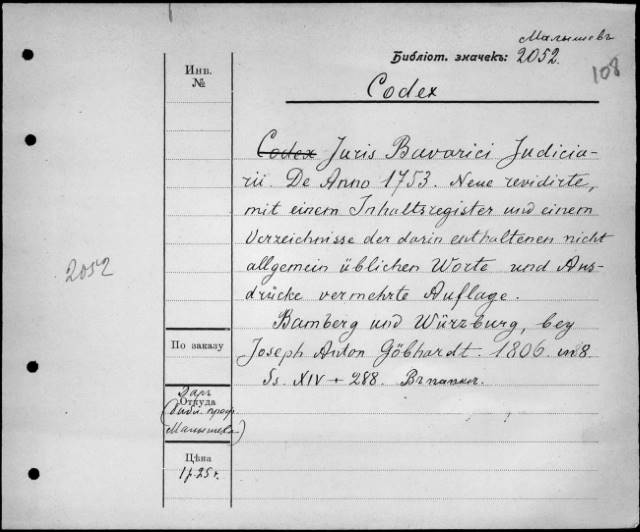 Малышевъ
Библіот. значекъ: 2052.
108
Инв.
№
Codex
Codex Juris Bavarici Judicia-
rii. De Anno 1753. Neue revidirte,
mit einem Inhaltsregister und einem
Verzeichnisse der darin enthaltenen nicht
allgemein üblichen Worte und Aus-
drücke vermehrte Auflage.
2052
Bamberg und Würzburg, bey
По заказу
Joseph Anton Göbhardt. 1806. in 8.
Ss. XIV + 288. Въ папкѣ.
Даръ
Откуда
(Библ. проф.
Малышева)
Цѣна
1 р. 25 к.